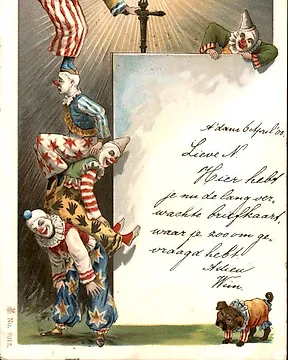 A'dam 6 April '02.
Lieve N.
Hier hebt
je nu de lang ver,
wachte briefkaart,
waar je zoo om ge,
vraagd hebt.
Adieu
Wim.
No. 7912.